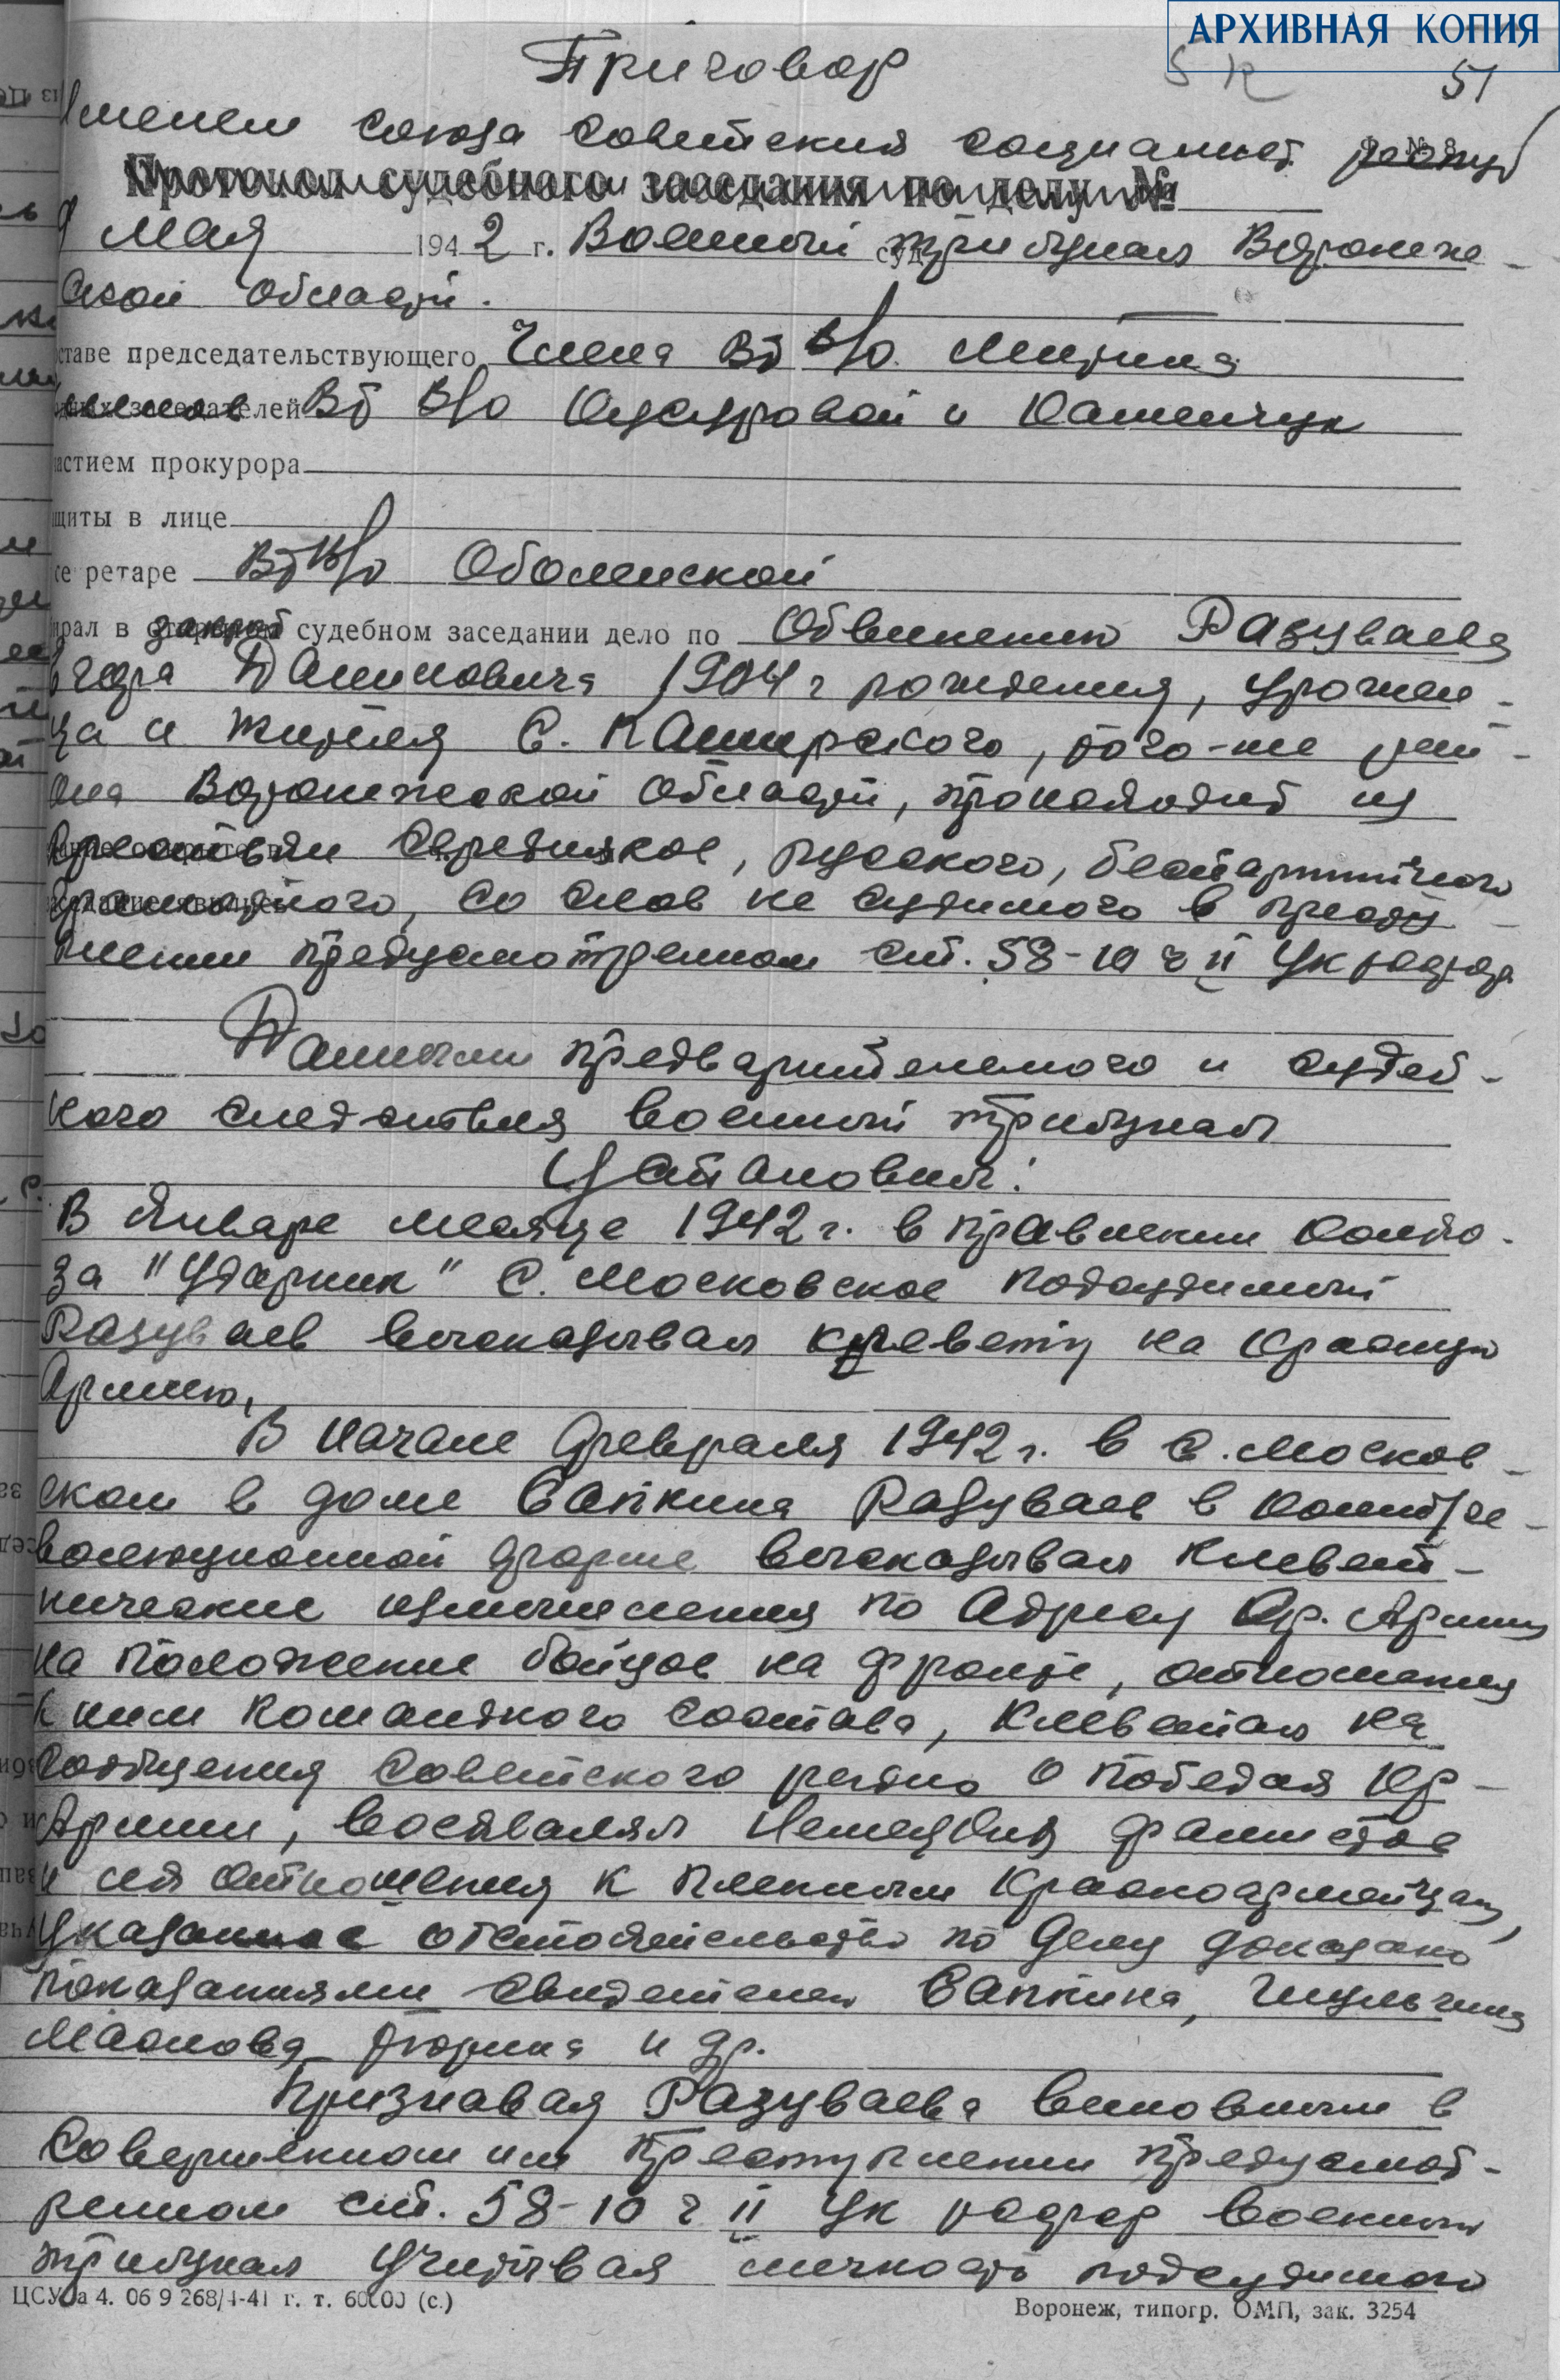 АРХИВНАЯ КОПИЯ
51
Приговор
Именем Союза Советских Социалист. Респуб
Протокол судебного заседания по делу №
9 мая 1942 г. Военный трибунал Воронеж-
ской области.
ставе председательствующего Члена ВТ в/о Митина
членов ВТ в/о и Каменчук
астием прокурора
щиты в лице
се ретаре ВТ в/о Оболенской
ирал в закрыт судебном заседании дело по Обвинению Разуваева
Даниловича 1904 г рождения, урожен-
ца и жителя С. Каширского, того-же рай-
она Воронежской области, происходит из
крестьян середняков, русского, беспартийного
грамотного, со слов не судимого в престу
плении предусмотренном ст. 58-10 ч II УК РСФСР
Данными предварительного и судеб-
ного следствия военный трибунал
Установил:
В Январе месяце 1942 г. в правлении колхо-
за "Ударник" С. Московское подсудимый
Разуваев высказывал клевету на Красную
Армию,
В начале февраля 1942 г. в С. Москов-
ском в доме Сапкина Разуваев в контрре-
волюционной форме высказывал клевет-
нические измышления по адресу Кр. Армии
на положение бойцов на фронте, отношения
к ним командного состава, клеветал на
сообщения Советского радио о победах Кр-
Армии, восхвалял Немецких фашистов
и их отношения к пленным красноармейцам,
Указанное обстоятельство по делу доказано
показаниями свидетелей Сапкина,
Маслова и др.
Признавая Разуваева виновным в
совершенном им преступлении предусмот-
ренном ст. 58-10 ч II УК РСФСР военный
трибунал учитывая личность подсудимого
Воронеж, типогр. ОМП, зак. 3254